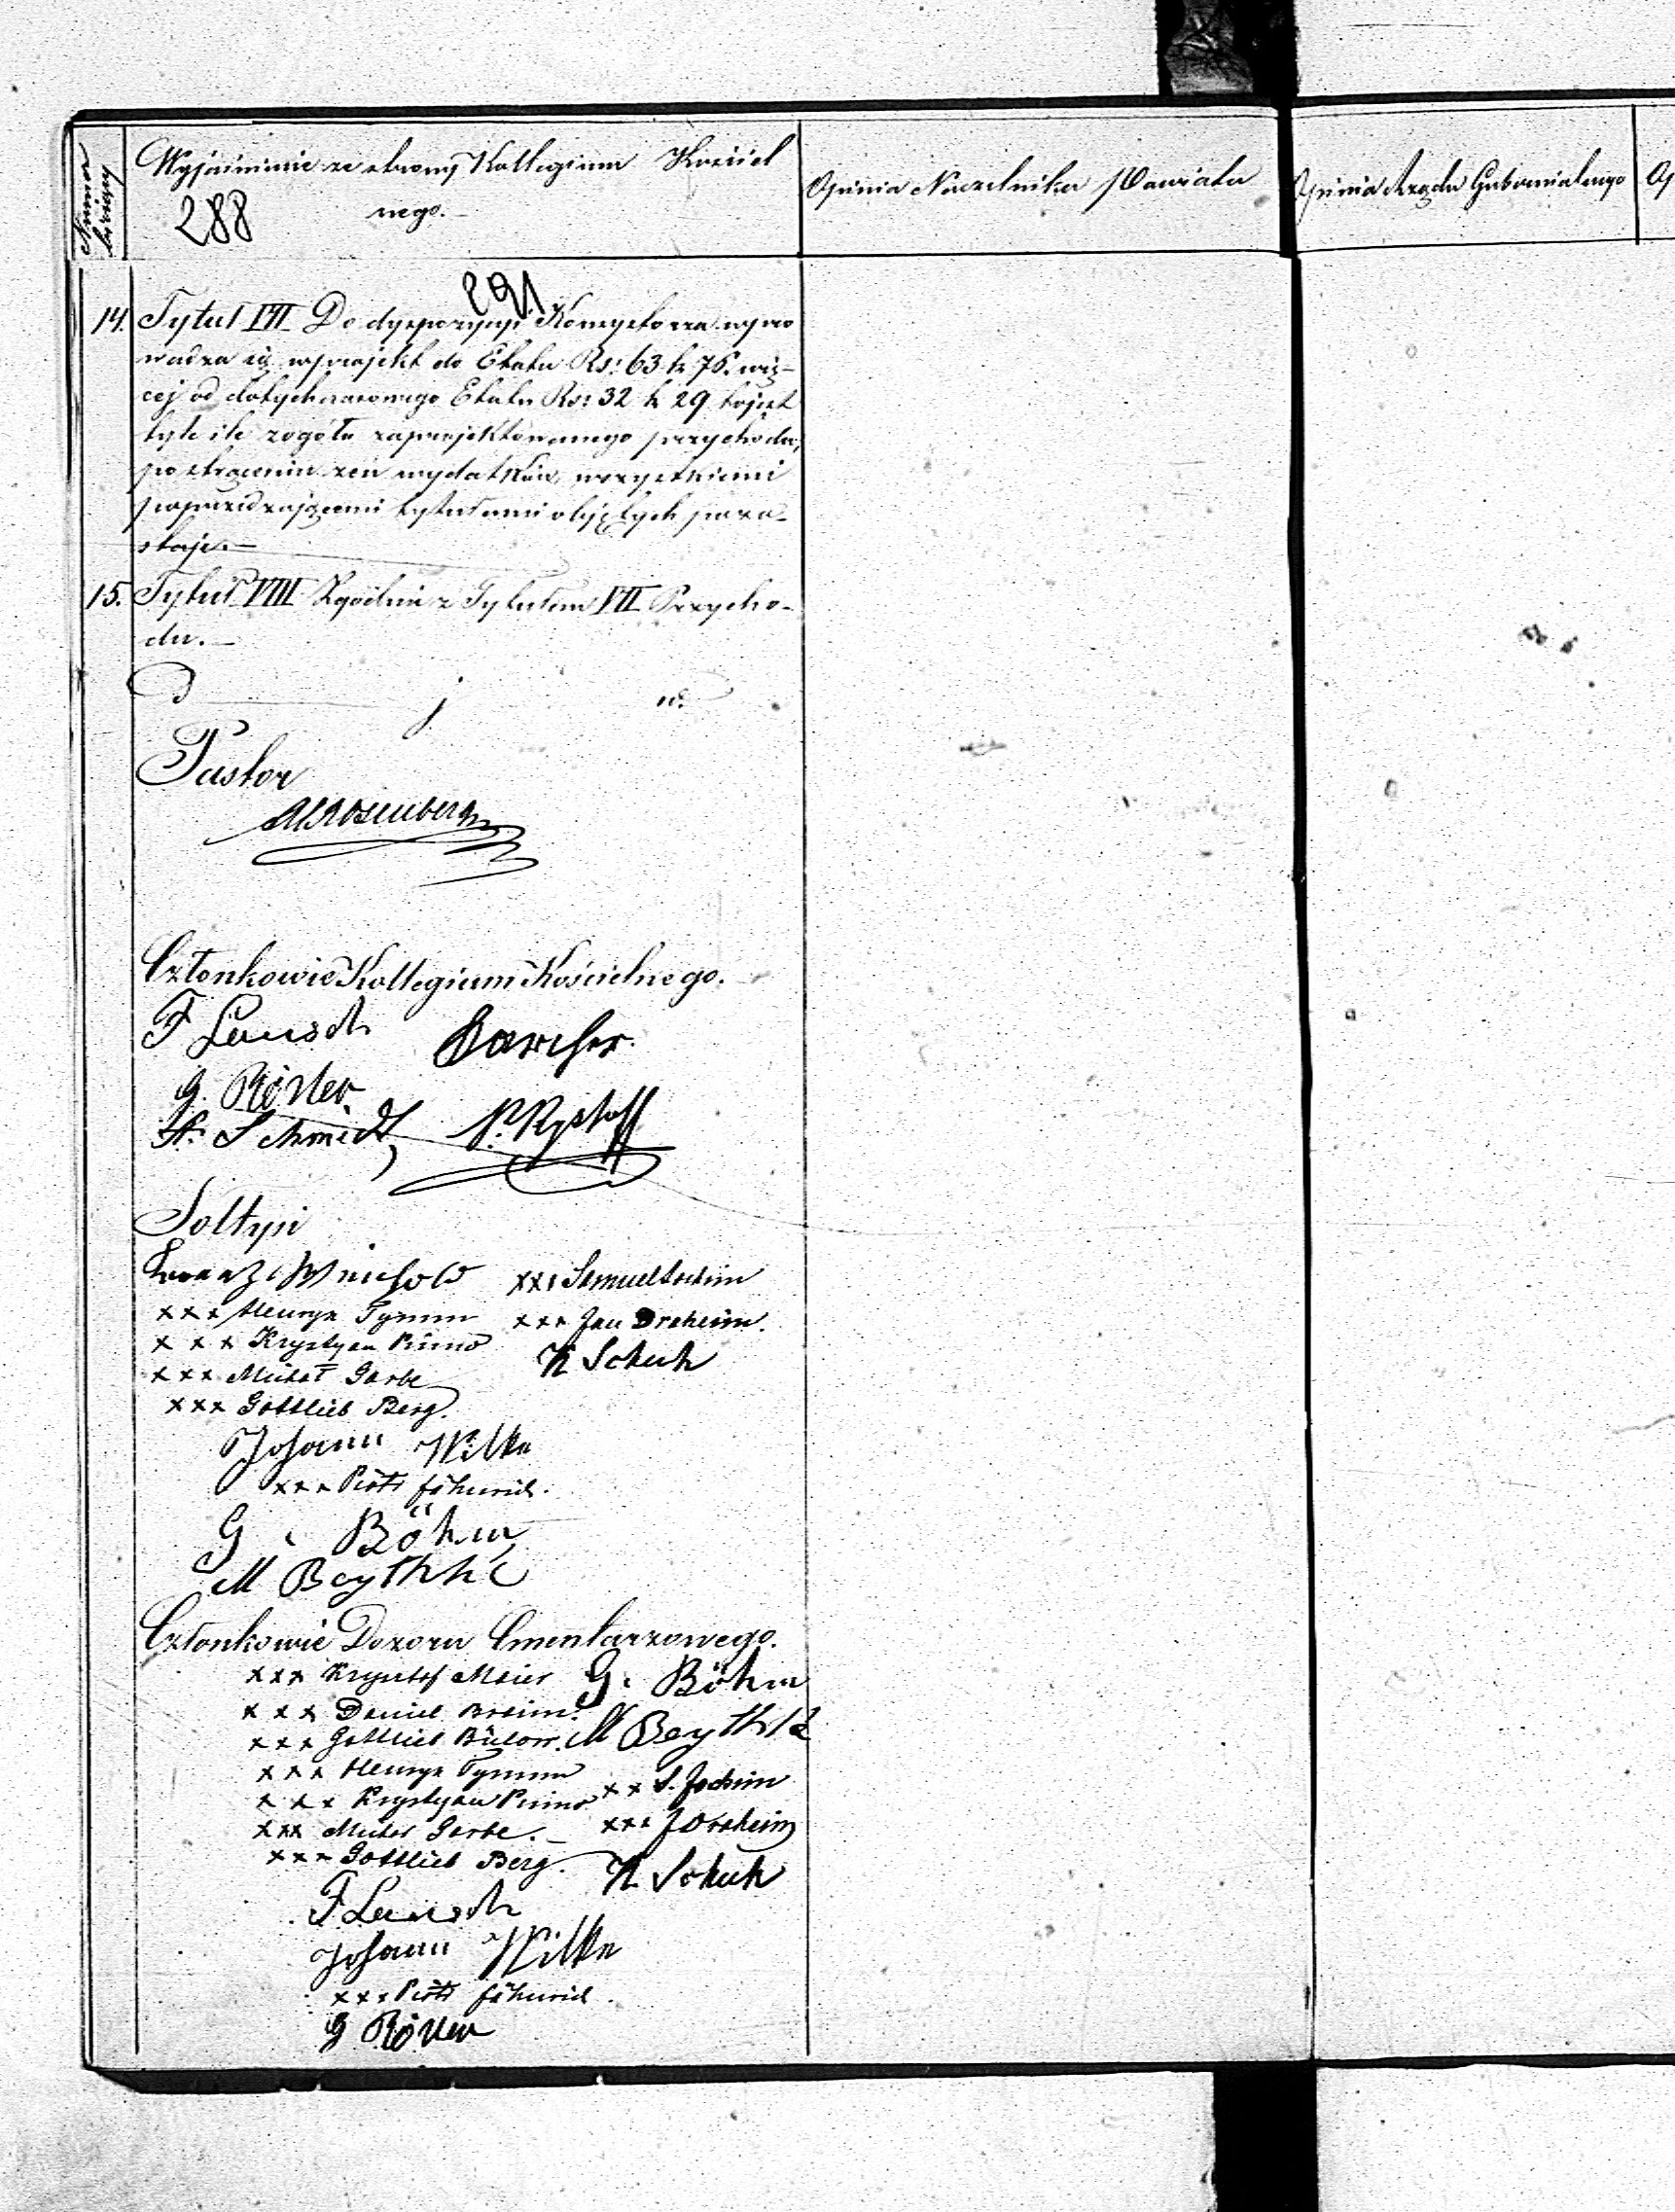 Numer bieżący
Wyjaśnienie ze strony Kollegium Kościel
nego.-
288
Opinia Naczelnika Powiatu
Opinia Rządu Gubernialnego
Op
291
14. Tytuł VII Do dyspozycyi Konsystorza wpro
wadza się w projekt do Etatu Rs: 63 k 75. wię-
cej od dotychczasowego Etatu Rs: 32 k 29 to jest
tyle ile zogółu zaprojektowanego przychodu,
po strąceniu zeń wydatków, wszystkiemi
poprzedzającemi tytułami objętych poza-
staje.-
15. Tytuł VIII Zgodnie z Tytułem VII Przycho-
du.-
Pastor
Rosenberg
Członkowie Kollegium Kościelnego.
F Lausch
G. Röster
Schmidt
Sołtysi
xxx Samuel Jochim
xxx Henryk Tymm
xxx Jan Draheim.
xxx Krystyan Primo
K Schuh
xxx Michał Garbe
xxx Gottlieb Berg.
Johann Wilke
xxx Piotr Föhnrich.
G. Böhm
M Beythke
Członkowie Dozoru Cmentarzowego.
xxx Krysztof Maier
G. Böhm
xxx Daniel
xxx Gottlieb Bülow.
M Beythke
xxx Henryk Tymm
xx S. Jochim
xxx Krystyan Primo
xxx Michał Garbe.-
xxx J Draheim
xxx Gottlieb Berg.
K Schuh
F Lausch
Johann Wilke
xxx Piotr Föhnrich.
G Röster